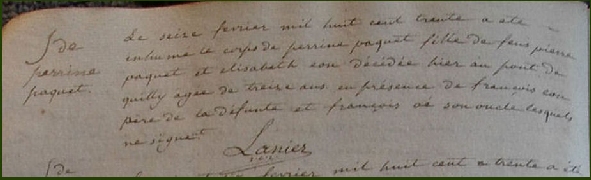 S de
perrine
paquet
Le seize fevrier mil huit cent trente a été
inhumé le corps de perrine paquet fille de feus pierre
paquet et elisabeth eon décidée hier au pont de
quilly agée de treize ans en presence de françois eon
père de la défunte et françois oé son oncle lesquels
ne signent
Lanier
S de
fevrier mil huit cent trente a été